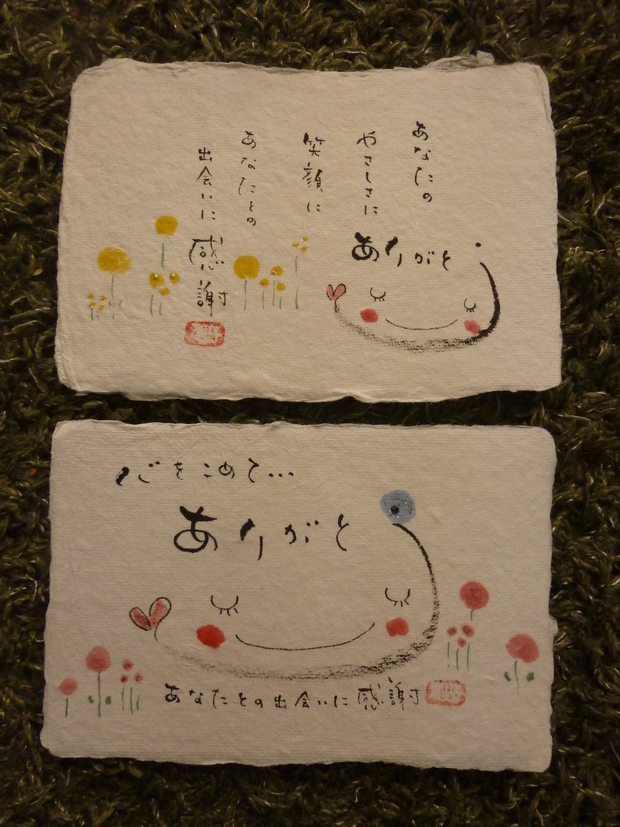 あなたの
やさしさに
笑顔に
ありがと
あなたとの
出会いに
感謝
心をこめて…
ありがと
あなたとの出会いに感謝